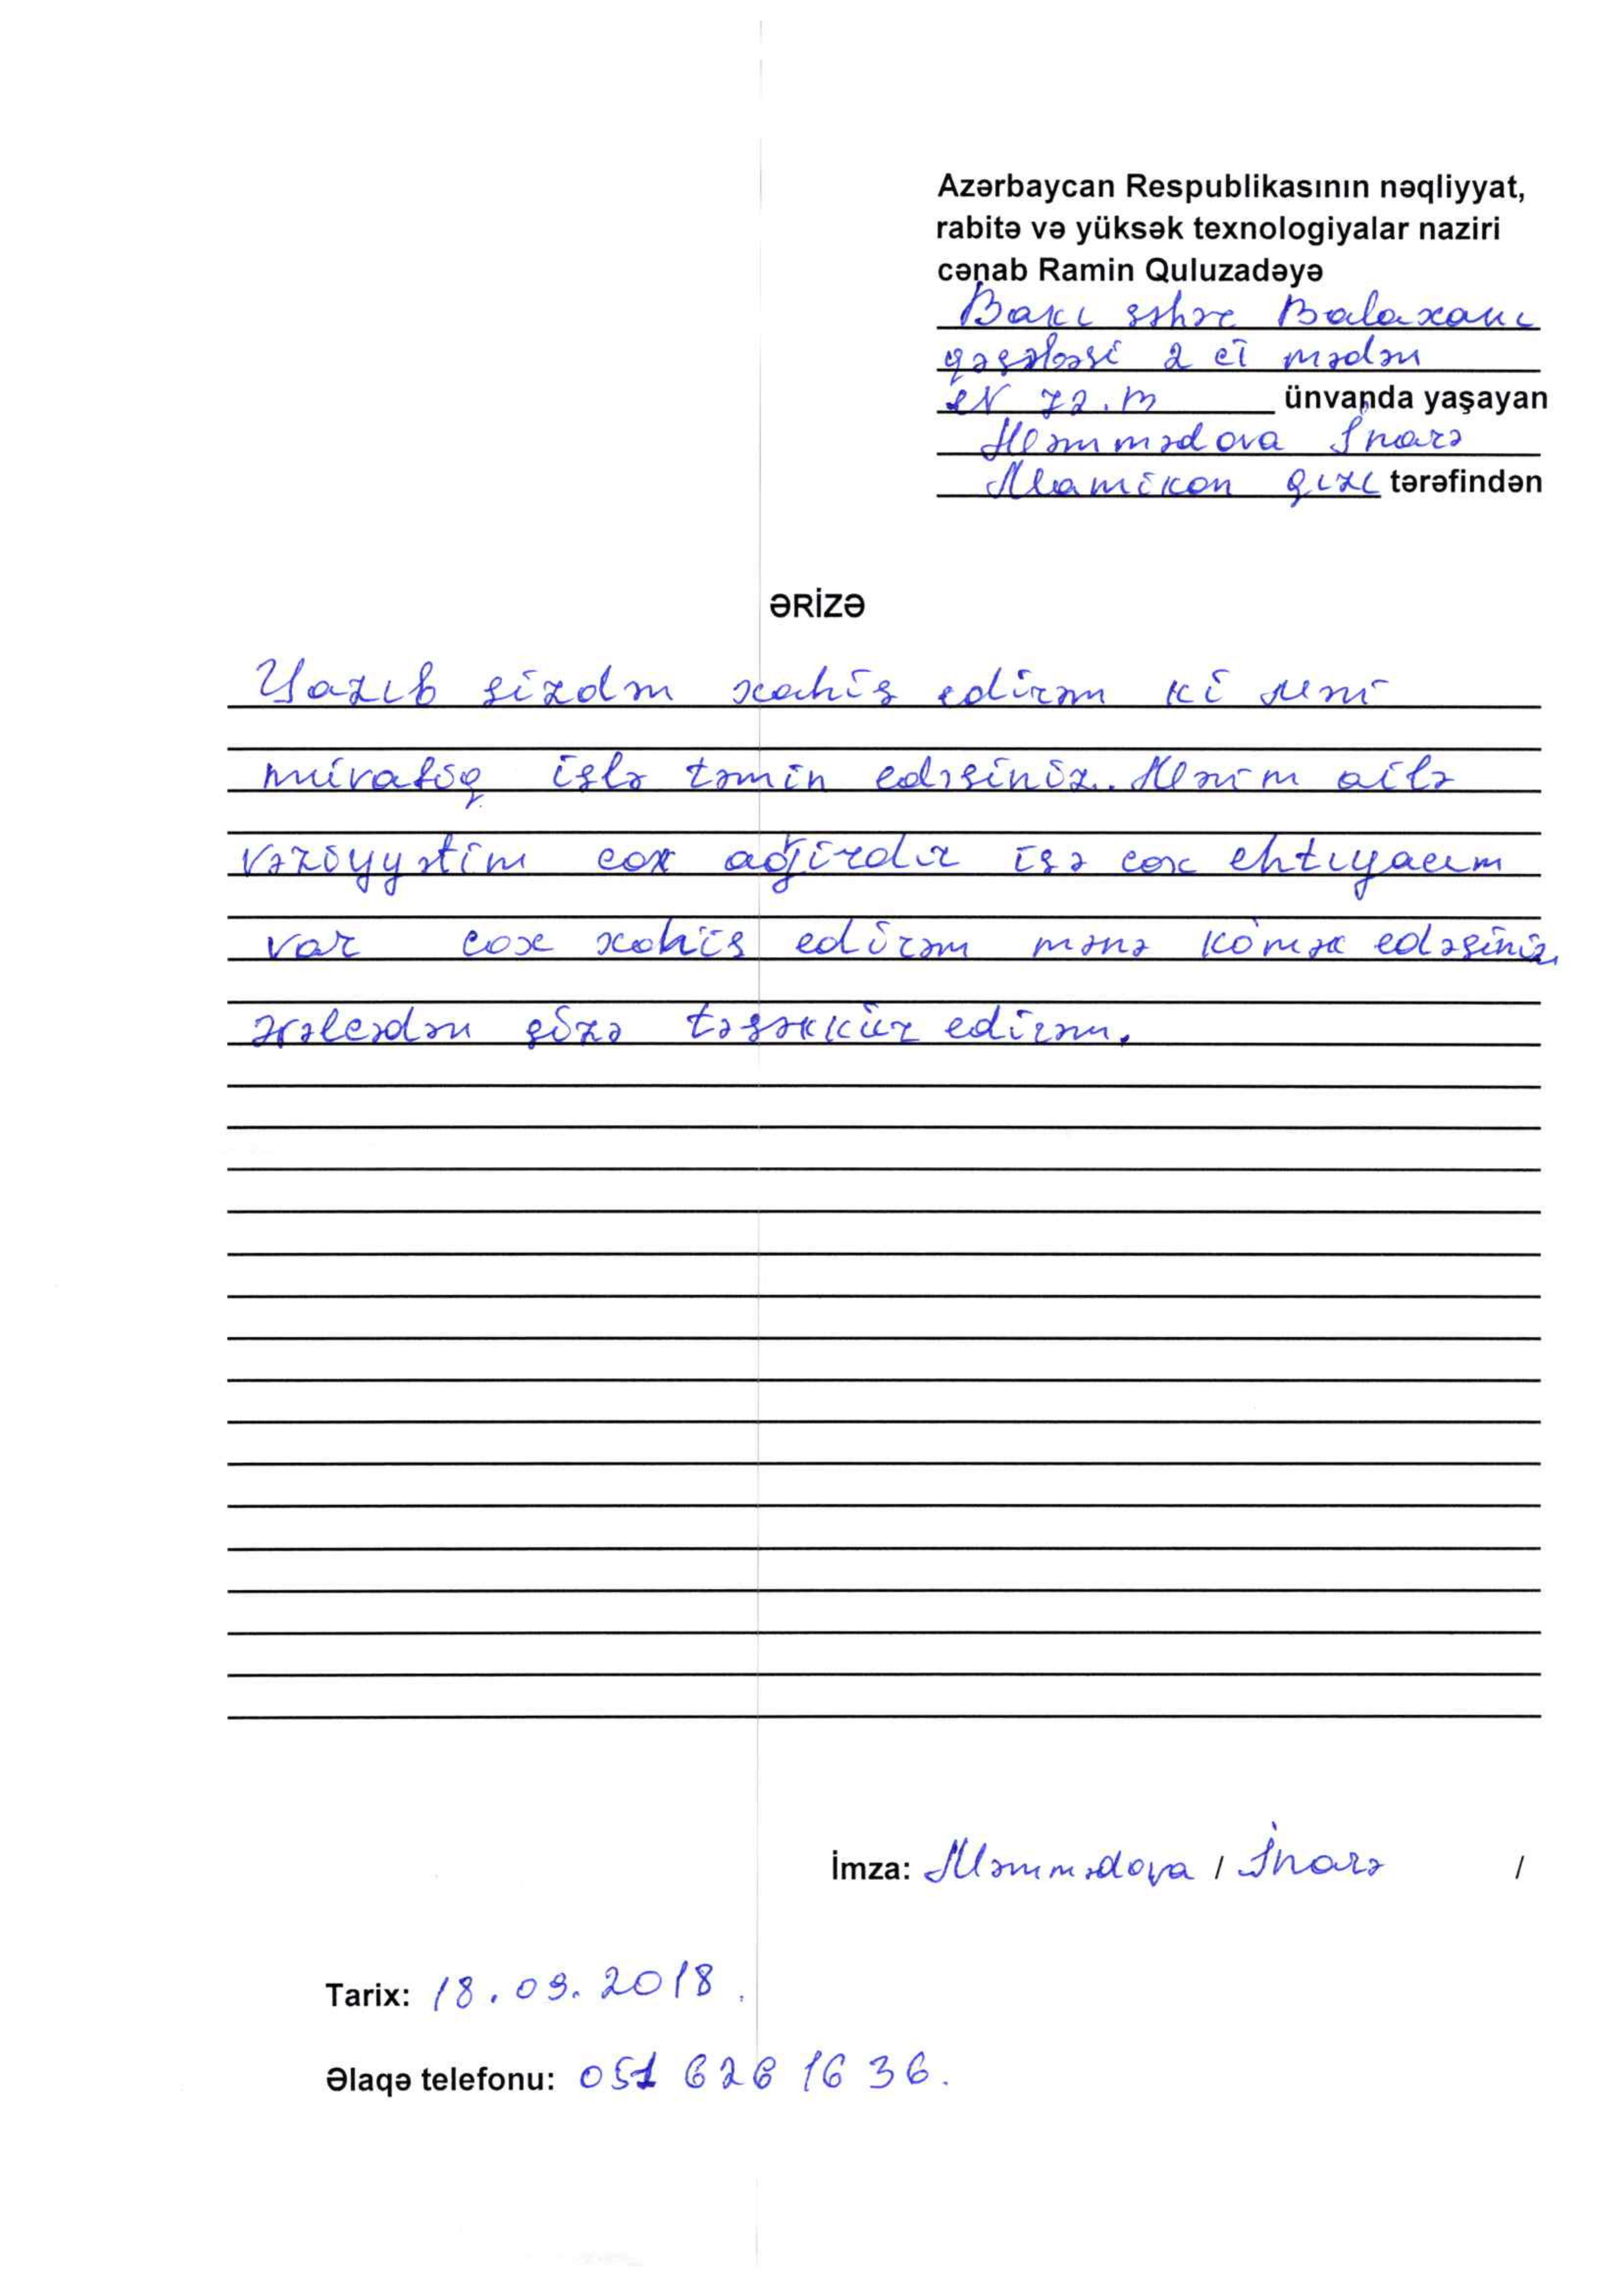 Azərbaycan Respublikasının nəqliyyat,
rabitə və yüksək texnologiyalar naziri
cənab Ramin Quluzadəyə
Bakı şəhre Balaxanı
qəsəbəsi 2 ci mədən
ev 72.m ünvanda yaşayan
Məmmədova İnarə
Mamikon qızı tərəfindən
ƏRİZƏ
Yazıb sizdən xahiş edirəm ki məni
müvafiq işlə təmin edəsiniz. Mənim ailə
vəziyyətim cox ağirdır işə cox ehtıyacım
var cox xahiş edirəm mənə kömək edəsiniz
əvəlcədən sizə təşəkkür edirəm.
İmza: Məmmədova / İnarə /
Tarix: 18.09.2018.
Əlaqə telefonu: 051 626 16 36.